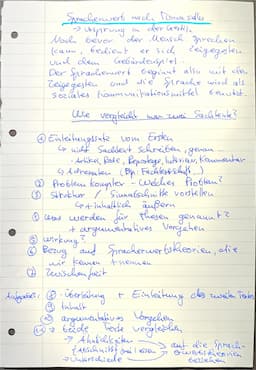 Spracherwerb nach Tomasello
→ Ursprung in der Gestik
Noch bevor der Mensch sprechen
kann, bedient er sich Zeigegesten
und dem Gebärdenspiel.
Der Spracherwerb beginnt also mit den
Zeigegesten und die Sprache wird als
soziales Kommunikationsmittel benutzt.
Wie vergleicht man zwei Sachtexte?
① Einleitungssatz vom Ersten
↳ nicht Sachtext schreiben, genau...
Artikel, Rede, Reportage, Interview, Kommentar
↳ Adressaten (Bsp.: Fachzeitschrift...)
② Problem komplex - Welches Problem?
③ Struktur / Sinnabschnitte vorstellen
↳ + inhaltlich äußern
④ Was werden für Thesen genannt?
+ argumentatives Vorgehen
⑤ Wirkung?
⑥ Bezug auf Spracherwerbstheorien, die
wir kennen + nennen
⑦ Zwischenfazit
Aufgabe: ⑧ Überleitung + Einleitung des zweiten Textes
⑨ Inhalt
⑩ argumentatives Vorgehen
⑪ → beide Texte vergleichen
→ Ähnlichkeiten → auf die Sprach-
→ Unterschiede → erwerbstheorien
beziehen